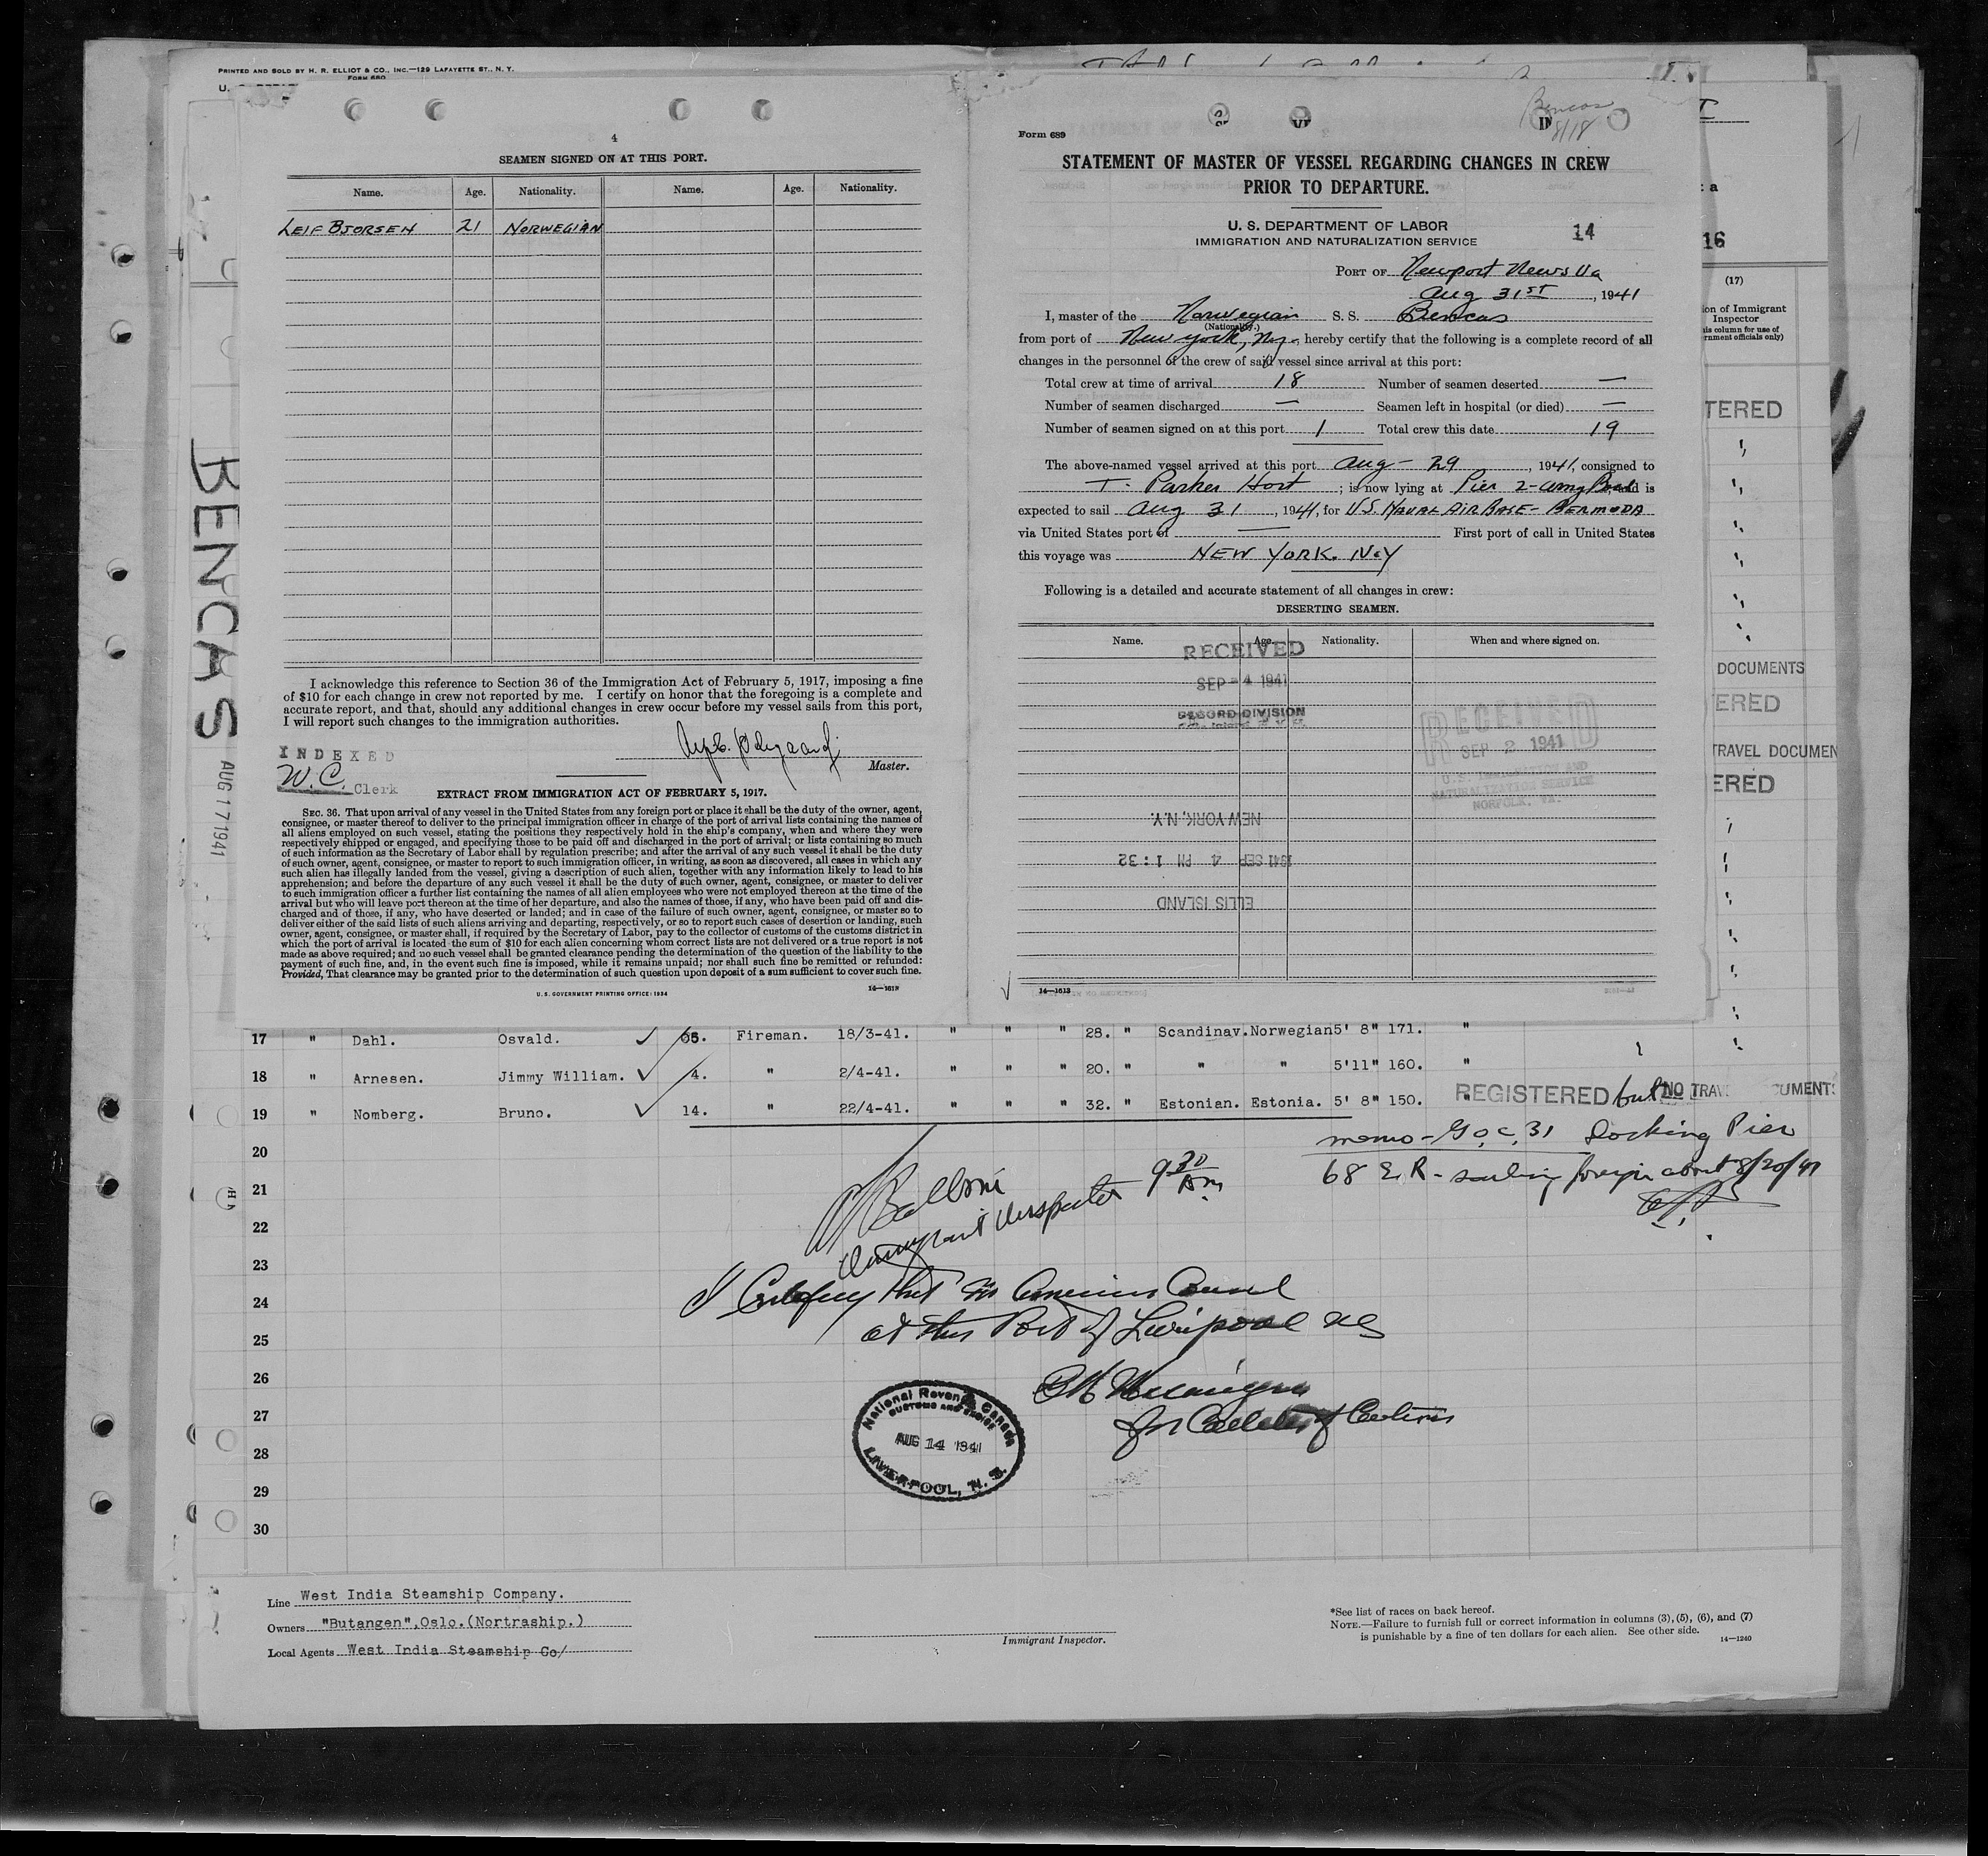 PRINTED AND SOLD BY H. R. ELLIOT & CO., INC.—129 LAFAYETTE ST., N. Y.
FORM 680
4
SEAMEN SIGNED ON AT THIS PORT.
Name. Age. Nationality. Name. Age. Nationality.
LEIF BJORSEN 21 NORWEGIAN
I acknowledge this reference to Section 36 of the Immigration Act of February 5, 1917, imposing a fine
of $10 for each change in crew not reported by me. I certify on honor that the foregoing is a complete and
accurate report, and that, should any additional changes in crew occur before my vessel sails from this port,
I will report such changes to the immigration authorities.
INDEXED
W.C. Clerk
Master.
EXTRACT FROM IMMIGRATION ACT OF FEBRUARY 5, 1917.
SEC. 36. That upon arrival of any vessel in the United States from any foreign port or place it shall be the duty of the owner, agent,
consignee, or master thereof to deliver to the principal immigration officer in charge of the port of arrival lists containing the names of
all aliens employed on such vessel, stating the positions they respectively hold in the ship's company, when and where they were
respectively shipped or engaged, and specifying those to be paid off and discharged in the port of arrival; or lists containing so much
of such information as the Secretary of Labor shall by regulation prescribe; and after the arrival of any such vessel it shall be the duty
of such owner, agent, consignee, or master to report to such immigration officer, in writing, as soon as discovered, all cases in which any
such alien has illegally landed from the vessel, giving a description of such alien, together with any information likely to lead to his
apprehension; and before the departure of any such vessel it shall be the duty of such owner, agent, consignee, or master to deliver
to such immigration officer a further list containing the names of all alien employees who were not employed thereon at the time of the
arrival but who will leave port thereon at the time of her departure, and also the names of those, if any, who have been paid off and dis-
charged and of those, if any, who have deserted or landed; and in case of the failure of such owner, agent, consignee, or master so to
deliver either of the said lists of such aliens arriving and departing, respectively, or so to report such cases of desertion or landing, such
owner, agent, consignee, or master shall, if required by the Secretary of Labor, pay to the collector of customs of the customs district in
which the port of arrival is located the sum of $10 for each alien concerning whom correct lists are not delivered or a true report is not
made as above required; and no such vessel shall be granted clearance pending the determination of the question of the liability to the
payment of such fine, and, in the event such fine is imposed, while it remains unpaid; nor shall such fine be remitted or refunded:
Provided, That clearance may be granted prior to the determination of such question upon deposit of a sum sufficient to cover such fine.
U. S. GOVERNMENT PRINTING OFFICE: 1934 14—1613
BENCAS
AUG 17 1941
Bencas
8/18
Form 689
STATEMENT OF MASTER OF VESSEL REGARDING CHANGES IN CREW
PRIOR TO DEPARTURE.
U. S. DEPARTMENT OF LABOR
IMMIGRATION AND NATURALIZATION SERVICE
14
PORT OF Newport News Va
Aug 31ST, 1941
I, master of the Norwegian S. S. Bencas
(Nationality.)
from port of New York, Ny. hereby certify that the following is a complete record of all
changes in the personnel of the crew of said vessel since arrival at this port:
Total crew at time of arrival 18 Number of seamen deserted —
Number of seamen discharged — Seamen left in hospital (or died) —
Number of seamen signed on at this port 1 Total crew this date 19
The above-named vessel arrived at this port Aug - 29, 1941, consigned to
T. Parker Host; is now lying at Pier 2- Army Base and is
expected to sail Aug 31, 1941, for U.S. NAVAL AIR BASE - BERMUDA
via United States port of — First port of call in United States
this voyage was NEW YORK. N.Y
Following is a detailed and accurate statement of all changes in crew:
DESERTING SEAMEN.
Name. Age. Nationality. When and where signed on.
RECEIVED
SEP - 4 1941
RECORD DIVISION
RECEIVED
SEP 2 1941
U.S. IMMIGRATION AND
NATURALIZATION SERVICE
NORFOLK, VA.
NEW YORK, N.Y.
1941 SEP 4 PM 1:32
ELLIS ISLAND
14—1613
16
(17)
ion of Immigrant
Inspector
is column for use of
rnment officials only)
TERED
DOCUMENTS
ERED
TRAVEL DOCUMEN
ERED
17 " Dahl. Osvald. 05. Fireman. 18/3-41. " " " 28. " Scandinav. Norwegian 5' 8" 171. "
18 " Arnesen. Jimmy William. 4. " 2/4-41. " " " 20. " " " 5'11" 160. "
19 " Nomberg. Bruno. 14. " 22/4-41. " " " 32. " Estonian. Estonia. 5' 8" 150. "
REGISTERED but NO TRAV CUMENTS
20
memo - G.O.C. 31 Docking Pier
68 E.R - sailing foreign about 8/20/41
21
Immigrant Inspector 9 30 Am
22
23
24
I Certify that no American Consul
25
at this Port of Liverpool NS
26
27
for Collector of Customs
28
29
30
National Revenue Canada
CUSTOMS AND EXCISE
AUG 14 1941
LIVERPOOL, N. S.
Line West India Steamship Company.
Owners "Butangen", Oslo. (Nortraship.)
Local Agents West India Steamship Co/
Immigrant Inspector.
*See list of races on back hereof.
NOTE.—Failure to furnish full or correct information in columns (3), (5), (6), and (7)
is punishable by a fine of ten dollars for each alien. See other side.
14—1240